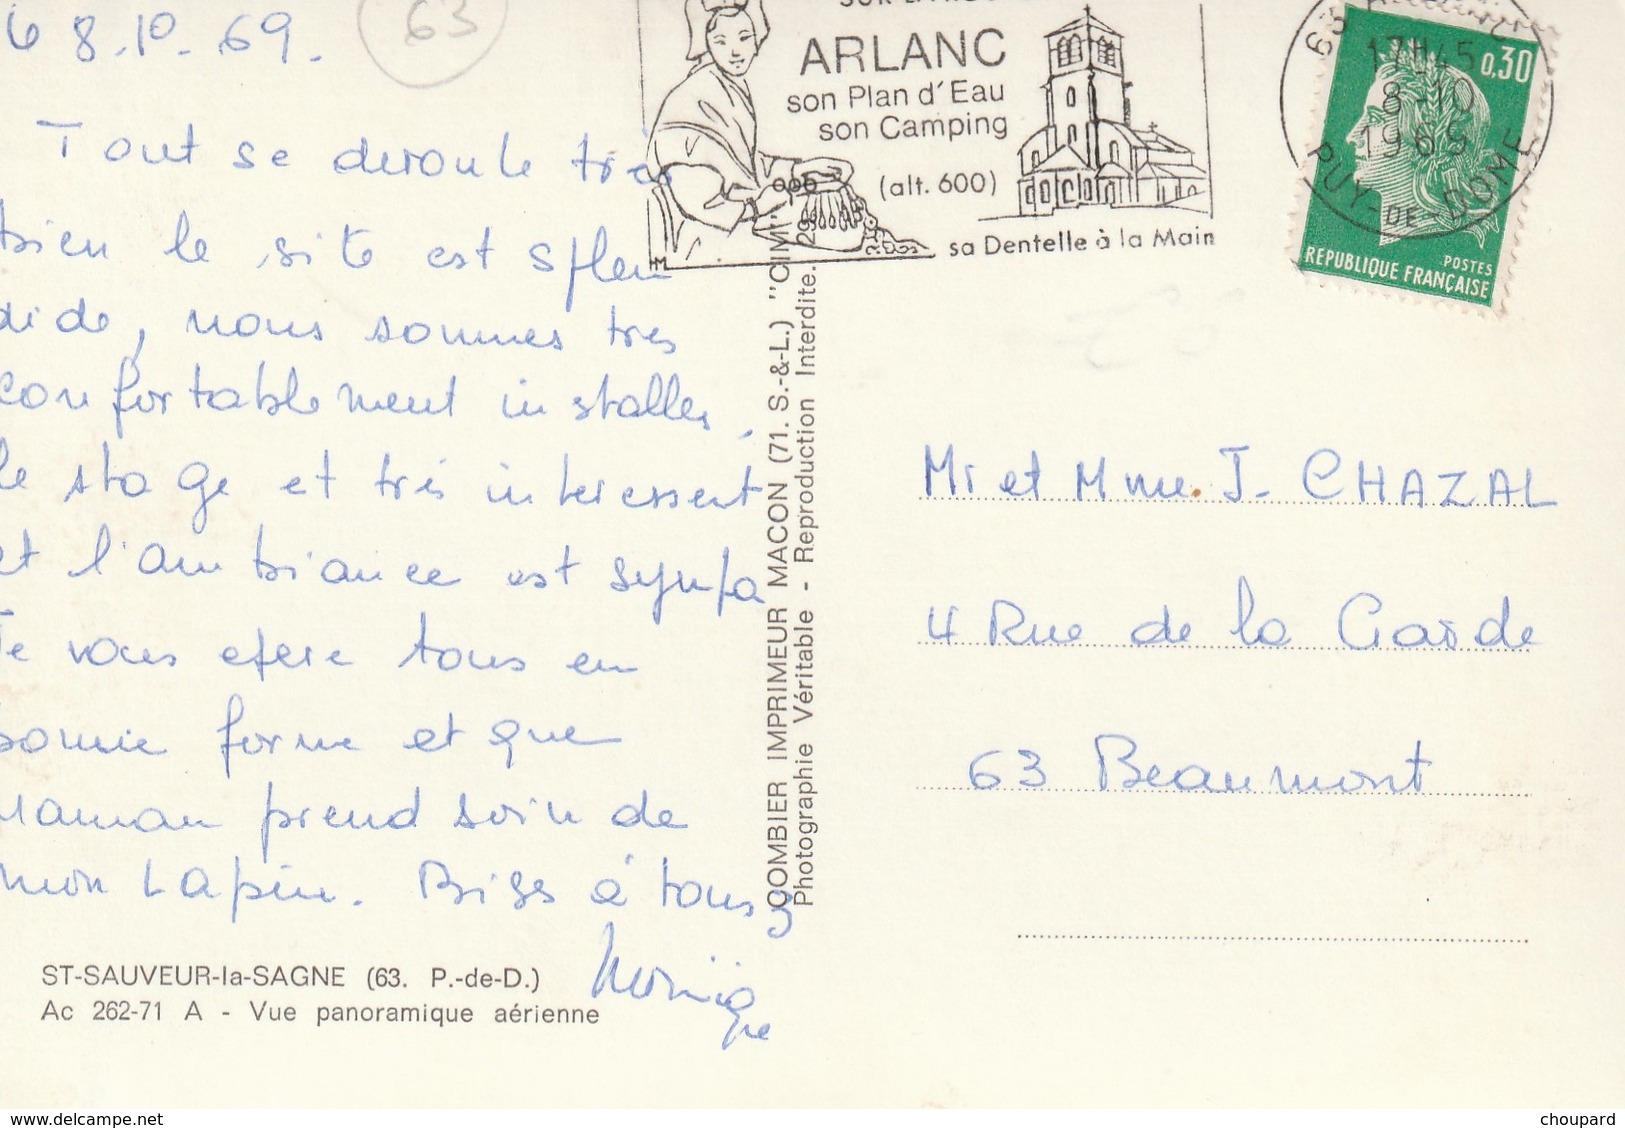 le 8.10.69.
63
Tout se deroule très
bien le site est splen
dide, nous sommes tres
confortablement installes,
le stage et très interessent
et l'ambiance est sympa
Je vous espere tous en
bonne forme et que
maman prend soin de
mon Lapin. Bises à tous
Monique
ST-SAUVEUR-la-SAGNE (63. P.-de-D.)
Ac 262-71 A - Vue panoramique aérienne
COMBIER IMPRIMEUR MACON (71. S.-&-L.) "CIM"
Photographie Véritable - Reproduction Interdite.
ARLANC
son Plan d'Eau
son Camping
(alt. 600)
sa Dentelle à la Main
HM
17H45
8-10
1969
PUY-DE-DOME
0,30
POSTES
REPUBLIQUE FRANÇAISE
Mr et Mme. J. CHAZAL
4 Rue de la Garde
63 Beaumont
www.delcampe.net
choupard